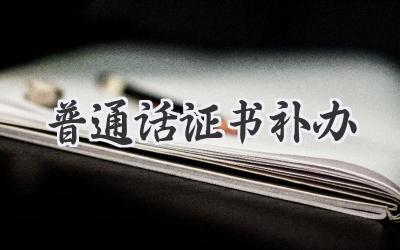 普通话证书补办